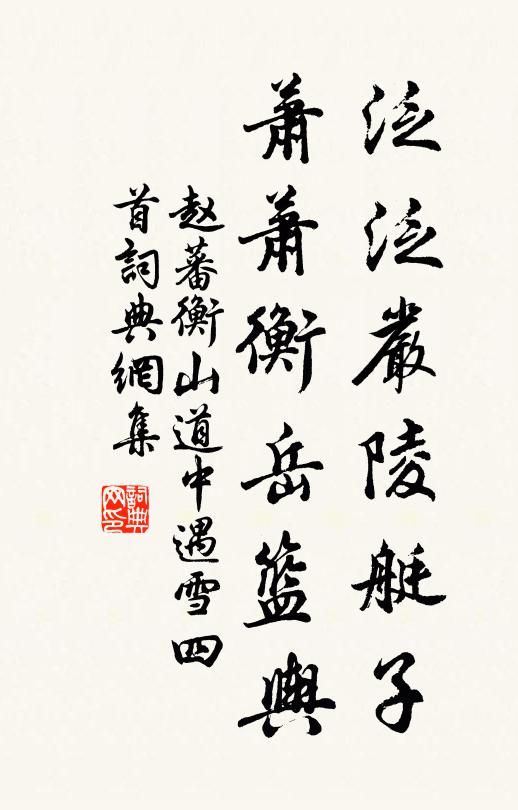 泛泛嚴陵艇子
蕭蕭衡岳籃輿
赵蕃衡山道中遇雪四
首詞典網集
詞典
网印